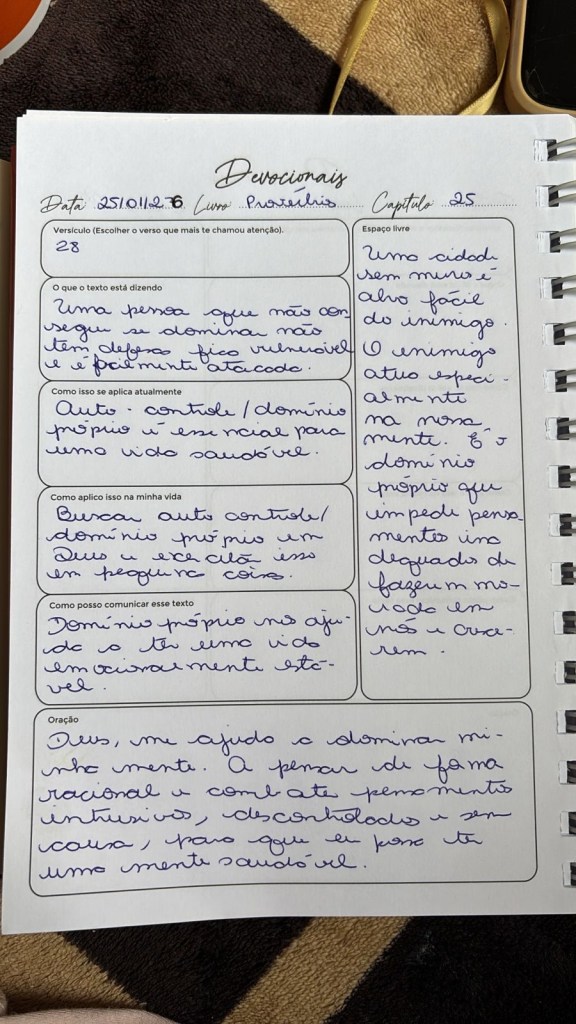 Devocionais
Data 25/01/26 Livro Provérbios Capítulo 25
Versículo (Escolher o verso que mais te chamou atenção).
28
O que o texto está dizendo
Uma pessoa que não con-
segue se dominar não
tem defesa fica vulnerável
e é facilmente atacada.
Como isso se aplica atualmente
Auto-controle/domínio
próprio é essencial para
uma vida saudável.
Como aplico isso na minha vida
Buscar auto controle/
domínio próprio em
Deus e exercitar isso
em pequenas coisas.
Como posso comunicar esse texto
Domínio próprio nos aju-
da a ter uma vida
emocionalmente está-
vel.
Espaço livre
Uma cidade
sem muro é
alvo fácil
do inimigo.
O enimigo
atua especi-
almente
na nossa
mente. É o
domínio
próprio que
impede pensa-
mentos ina
dequados de
fazerem mo-
rada em
nós e cresce-
rem.
Oração
Deus, me ajuda a dominar mi-
nha mente. A pensar de forma
racional e combater pensamentos
intrusivos, descontrolados e sem
causa, para que eu possa ter
uma mente saudável.